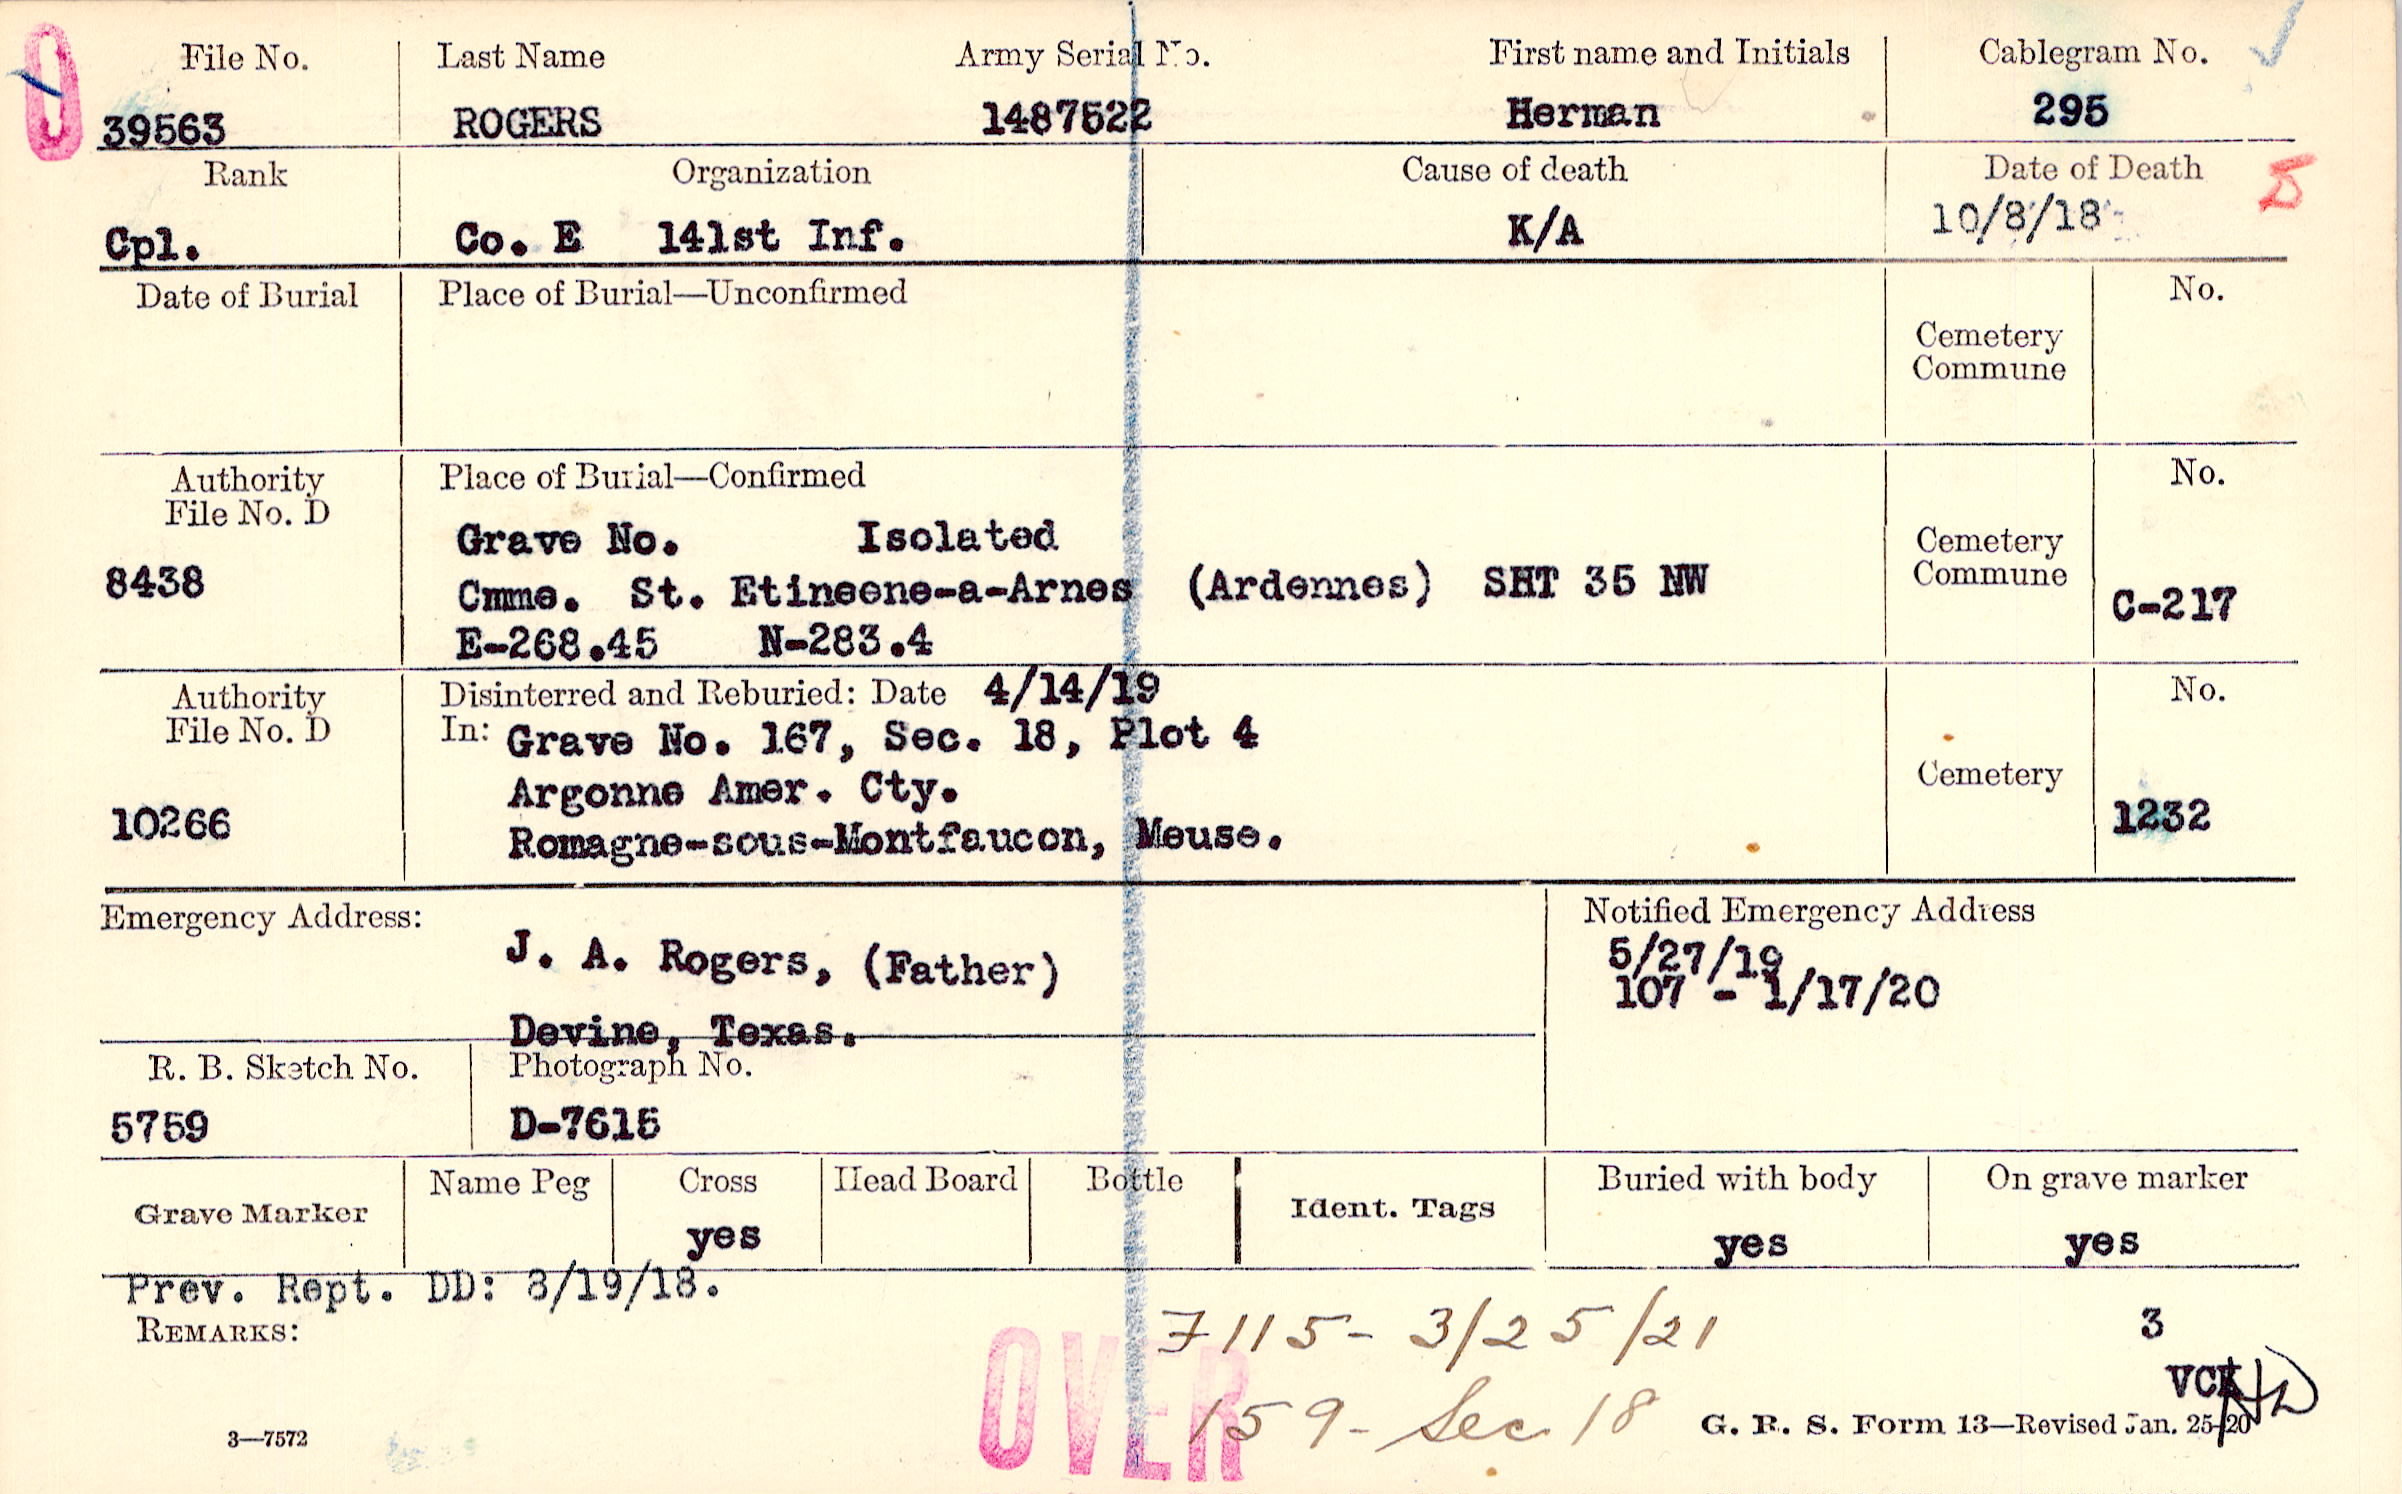 File No. Last Name Army Serial No. First name and Initials Cablegram No.
39563 ROGERS 1487522 Herman 295
Rank Organization Cause of death Date of Death 5
Cpl. Co. E 141st Inf. K/A 10/8/18
Date of Burial Place of Burial—Unconfirmed No.
Cemetery
Commune
Authority Place of Burial—Confirmed No.
File No. D
Grave No. Isolated Cemetery
8438 Cmme. St. Etineene-a-Arnes (Ardennes) SHT 35 NW Commune C-217
E-268.45 N-283.4
Authority Disinterred and Reburied: Date 4/14/19 No.
File No. D In: Grave No. 167, Sec. 18, Plot 4
Argonne Amer. Cty. Cemetery
10266 Romagne-sous-Montfaucon, Meuse. 1232
Emergency Address: Notified Emergency Address
J. A. Rogers, (Father) 5/27/19
107 - 1/17/20
Devine, Texas.
R. B. Sketch No. Photograph No.
5759 D-7615
Grave Marker Name Peg Cross Head Board Bottle Ident. Tags Buried with body On grave marker
yes yes yes
Prev. Rept. DD: 8/19/18.
REMARKS: 7115- 3/25/21 3
OVER VCK
159- Sec. 18
3—7572 G. R. S. Form 13—Revised Jan. 25-20